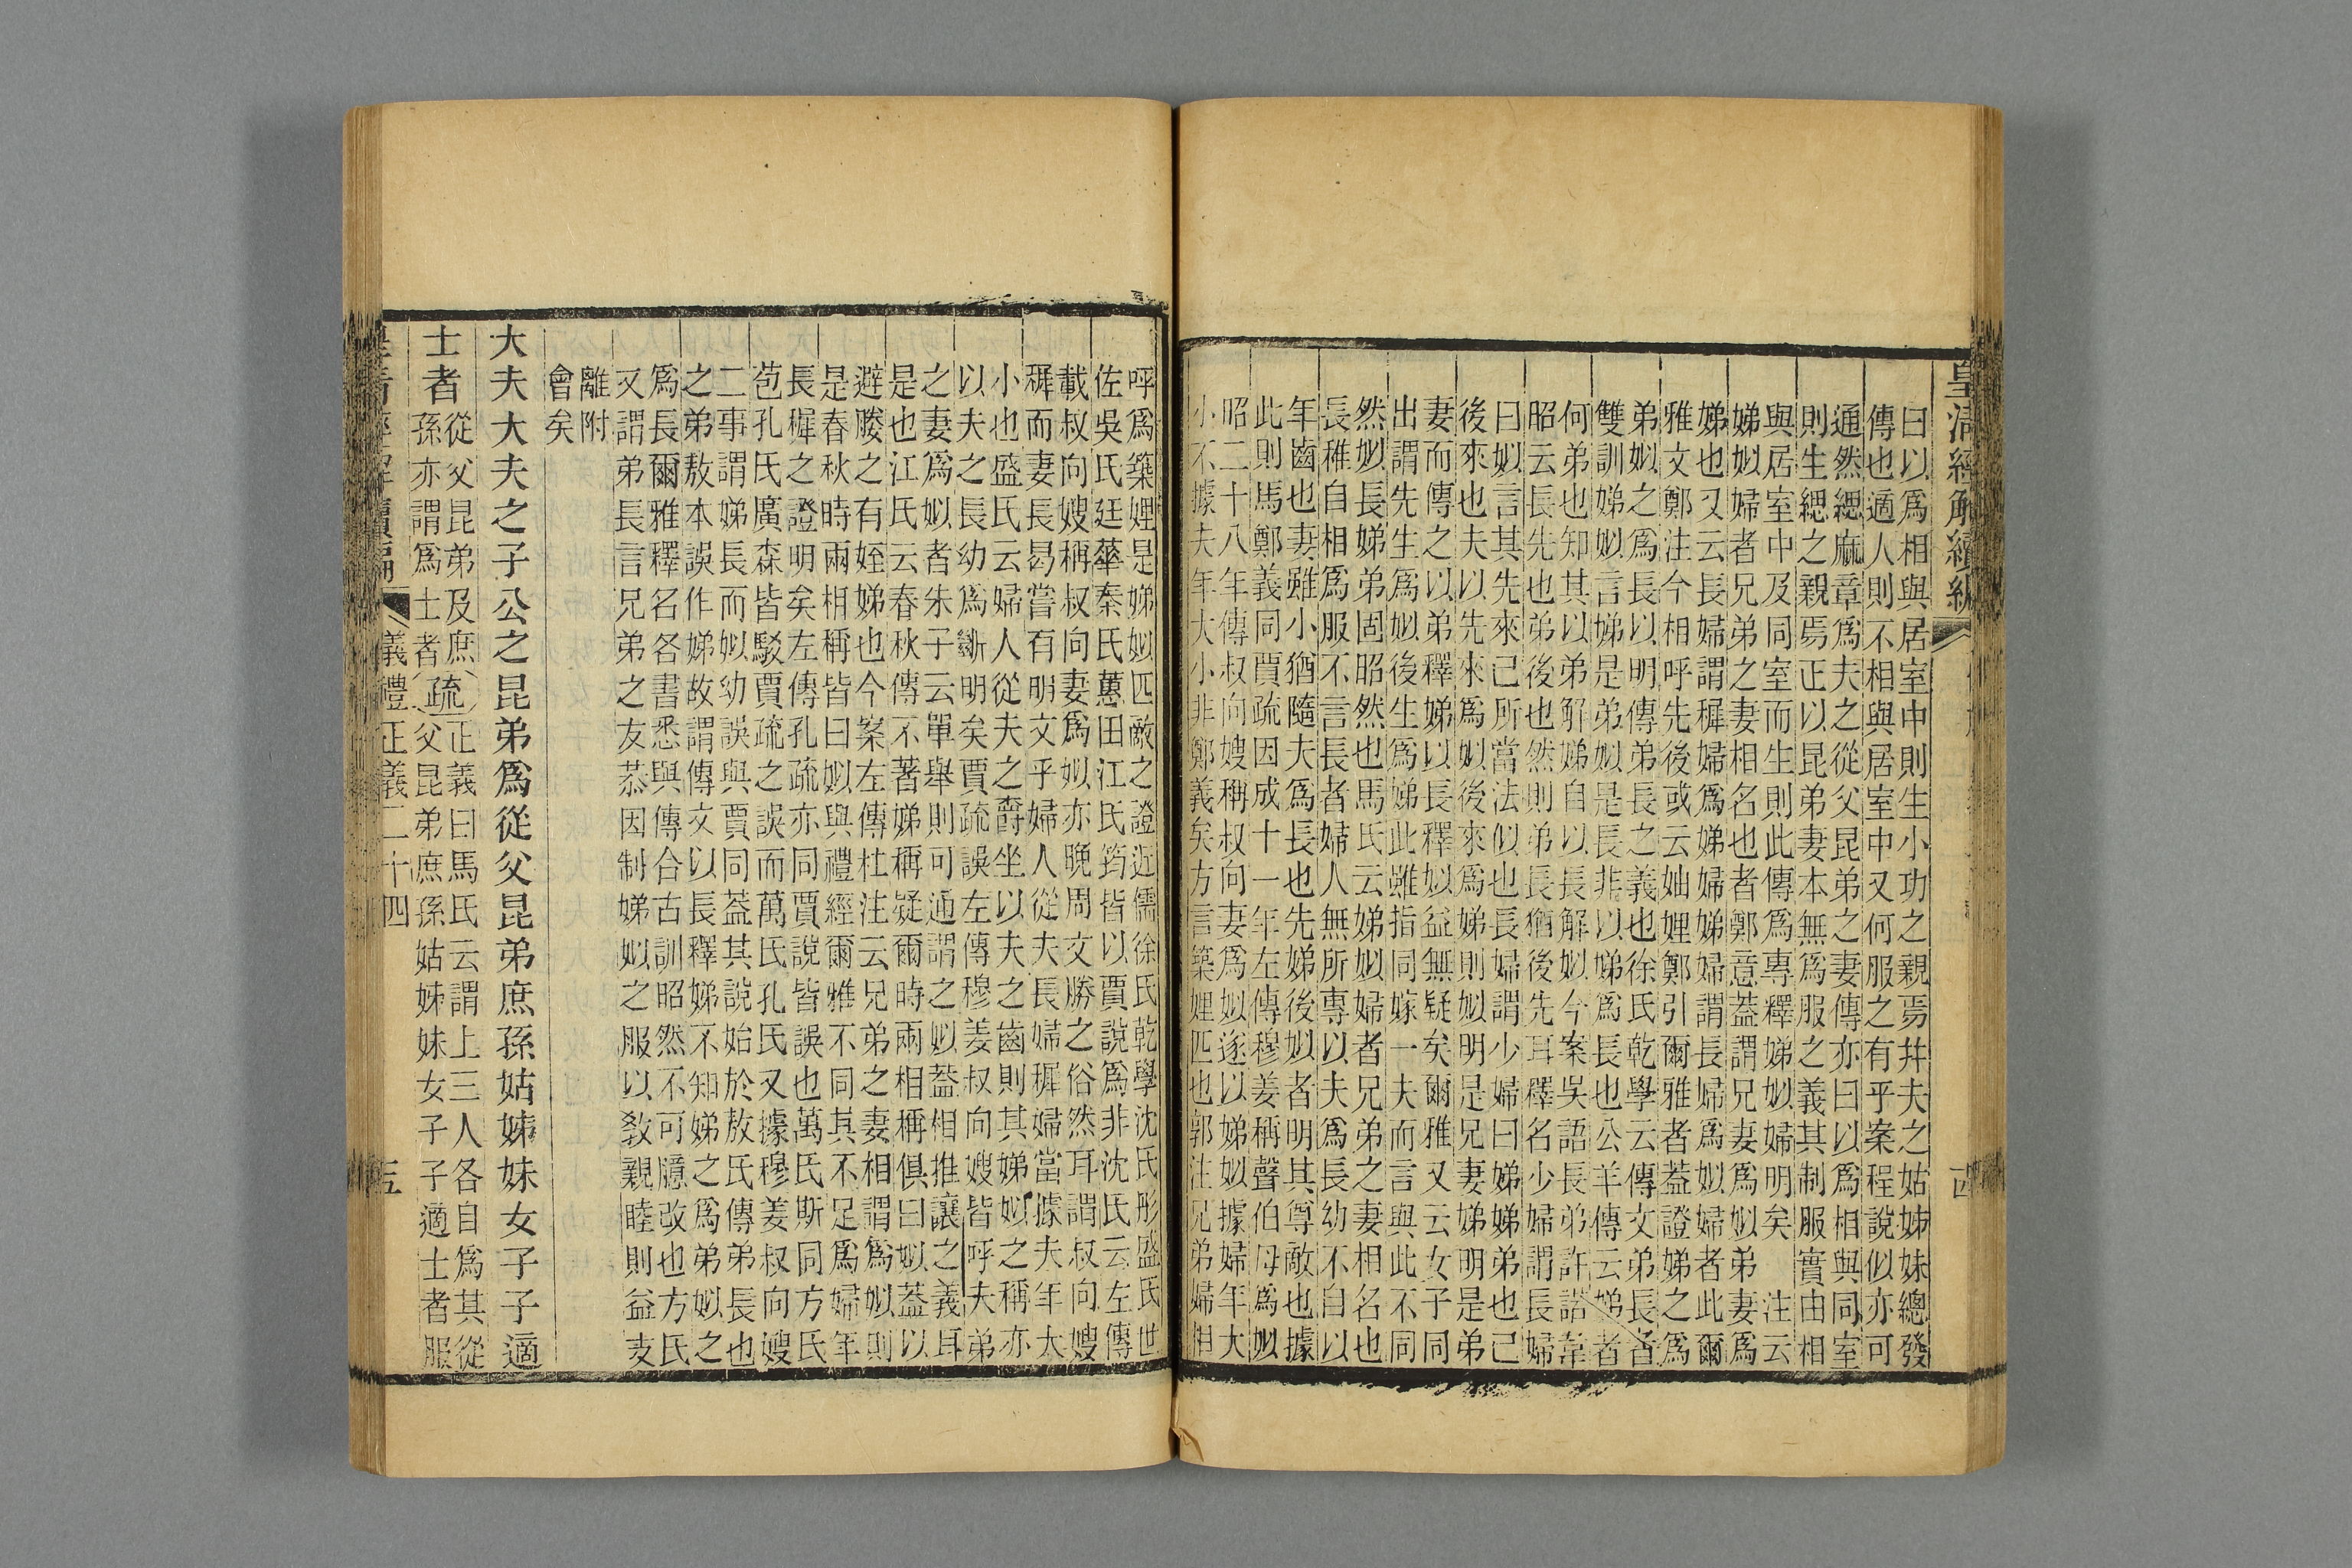 皇清經解續編
曰以爲相與居室中則生小功之親焉幷夫之姑姊妹總發
傳也適人則不相與居室中又何服之有乎案程說似亦可
通然緦麻章爲夫之從父昆弟之妻傳亦曰以爲相與同室
則生緦之親焉正以昆弟妻本無爲服之義其制服實由相
與居室中及同室而生則此傳爲專釋娣姒婦明矣　注云
娣姒婦者兄弟之妻相名也者鄭意蓋謂兄妻爲姒弟妻爲
娣也又云長婦謂穉婦爲娣婦娣婦謂長婦爲姒婦者此爾
雅文鄭注今相呼先後或云妯娌鄭引爾雅者蓋證娣之爲
弟姒之爲長以明傳弟長之義也徐氏乾學云傳文弟長者
雙訓娣姒言娣是弟姒是長非以娣爲長也公羊傳云娣者
何弟也知其以弟解娣自以長解姒今案吳語長弟許諾韋
昭云長先也弟後也然則弟長猶後先耳釋名少婦謂長婦
曰姒言其先來己所當法似也長婦謂少婦曰娣娣弟也己
後來也夫以先來爲姒後來爲娣則姒明是兄妻娣明是弟
妻而傳之以弟釋娣以長釋姒益無疑矣爾雅又云女子同
出謂先生爲姒後生爲娣此雖指同嫁一夫而言與此不同
然姒長娣弟固昭然也馬氏云娣姒婦者兄弟之妻相名也
長稚自相爲服不言長者婦人無所專以夫爲長幼不自以
年齒也妻雖小猶隨夫爲長也先娣後姒者明其尊敵也據
此則馬鄭義同賈疏因成十一年左傳穆姜稱聲伯母爲姒
昭二十八年傳叔向嫂稱叔向妻爲姒遂以娣姒據婦年大
小不據夫年大小非鄭義矣方言築娌匹也郭注兄弟婦相
呼爲築娌是娣姒匹敵之證近儒徐氏乾學沈氏彤盛氏世
佐吳氏廷華秦氏蕙田江氏筠皆以賈說爲非沈氏云左傳
載叔向嫂稱叔向妻爲姒亦晚周文勝之俗然耳謂叔向嫂
穉而妻長曷嘗有明文乎婦人從夫長婦穉婦當據夫年大
小也盛氏云婦人從夫之爵坐以夫之齒則其娣姒之稱亦
以夫之長幼爲斷明矣賈疏誤左傳穆姜叔向嫂皆呼夫弟
之妻爲姒者朱子云單舉則可通謂之姒蓋相推讓之義耳
是也江氏云春秋傳不著娣稱疑爾時兩相稱俱曰姒蓋以
避媵之有姪娣也今案左傳杜注云兄弟之妻相謂爲姒則
是春秋時兩相稱皆曰姒與禮經爾雅不同其不足爲婦年
長穉之證明矣左傳孔疏亦同賈說皆誤也萬氏斯同方氏
苞孔氏廣森皆駁賈疏之誤而萬氏孔氏又據穆姜叔向嫂
二事謂娣長而姒幼誤與賈同蓋其說始於敖氏傳弟長也
之弟敖本誤作娣故謂傳文以長釋娣不知娣之爲弟姒之
爲長爾雅釋名各書悉與傳合古訓昭然不可臆改也方氏
又謂弟長言兄弟之友恭因制娣姒之服以敎親睦則益支
離附
會矣
大夫大夫之子公之昆弟爲從父昆弟庶孫姑姊妹女子子適
士者從父昆弟及庶
孫亦謂爲士者（疏）正義曰馬氏云謂上三人各自爲其從
父昆弟庶孫姑姊妹女子子適士者服
皇清經解續編　義禮正義二十四　三五